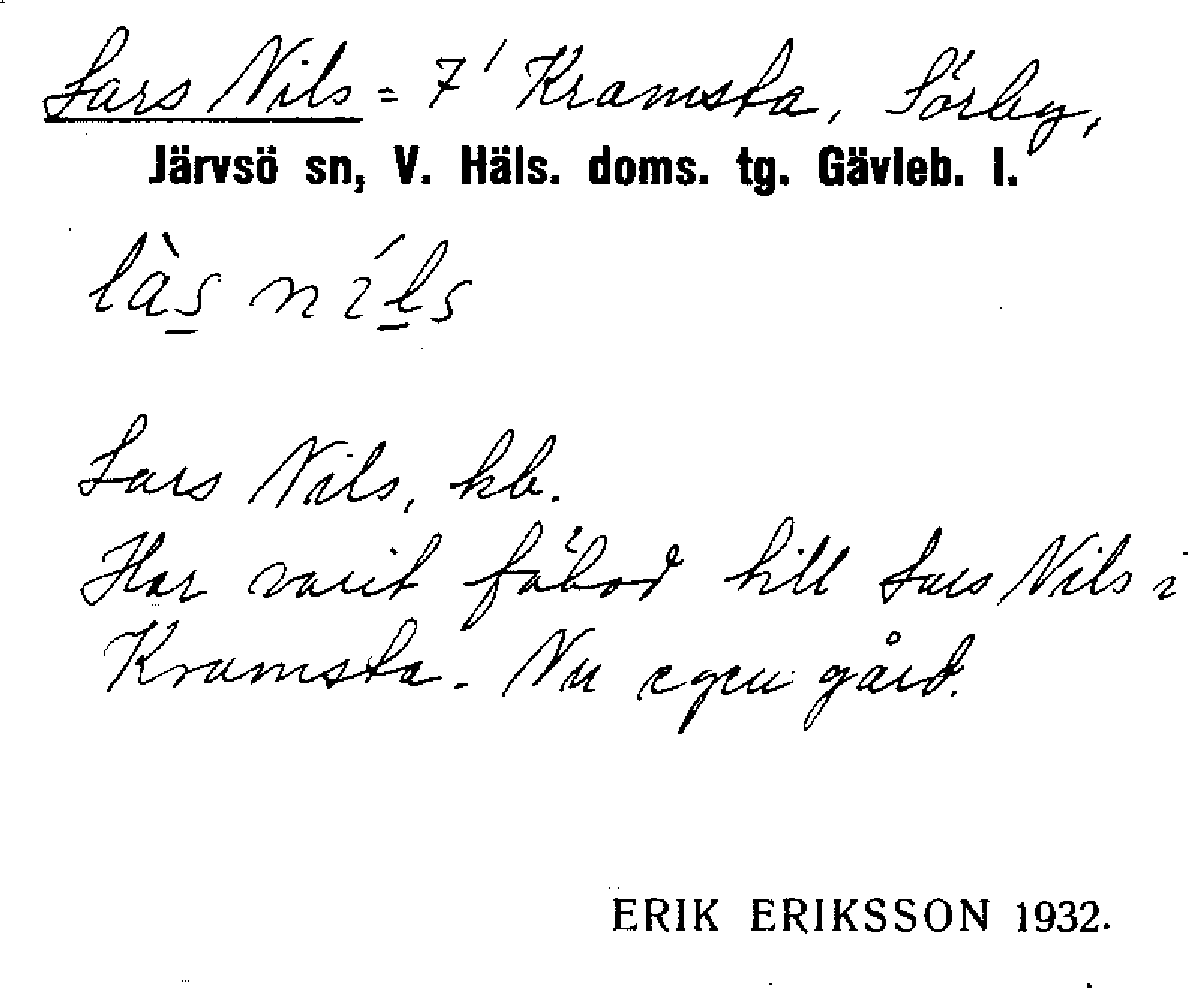 Lars Nils = 7' Kramsta, Sörby,
Järvsö sn, V. Häls. doms. tg. Gävleb. l.
là̱s níl̲s
Lars Nils, kb.
Har varit fäbod till Lars Nils i
Kramsta. Nu egen gård.
ERIK ERIKSSON 1932.